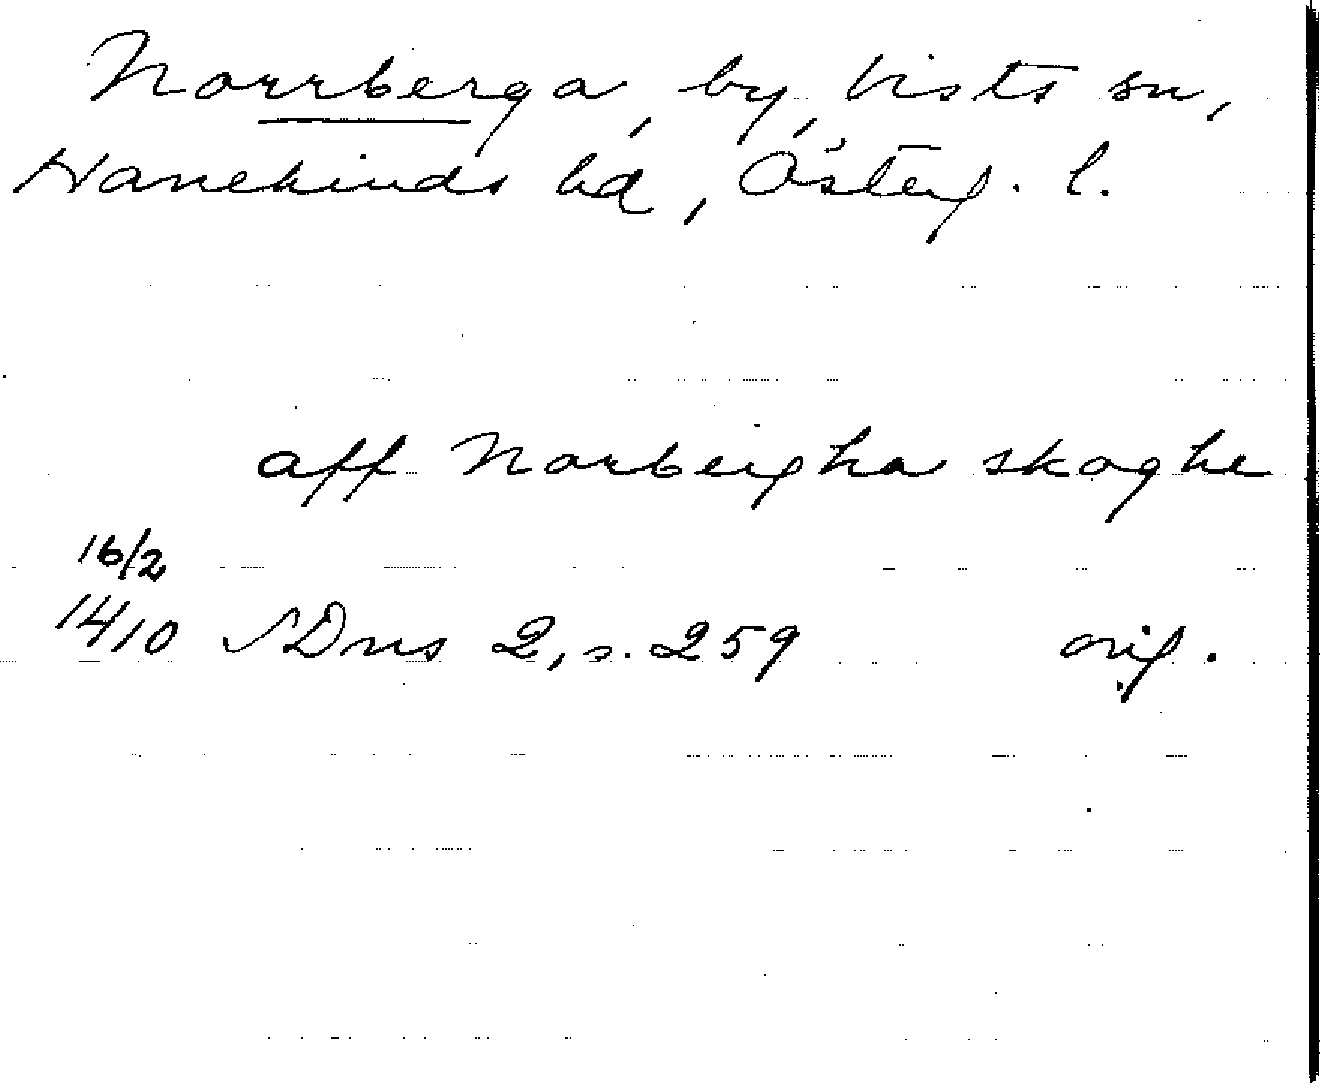 Norrberga, by, Vists sn,
Hanekinds hd, Österg. l.
aff Norbergha skoghe
16/2
1410 SDns 2, s. 259 orig.